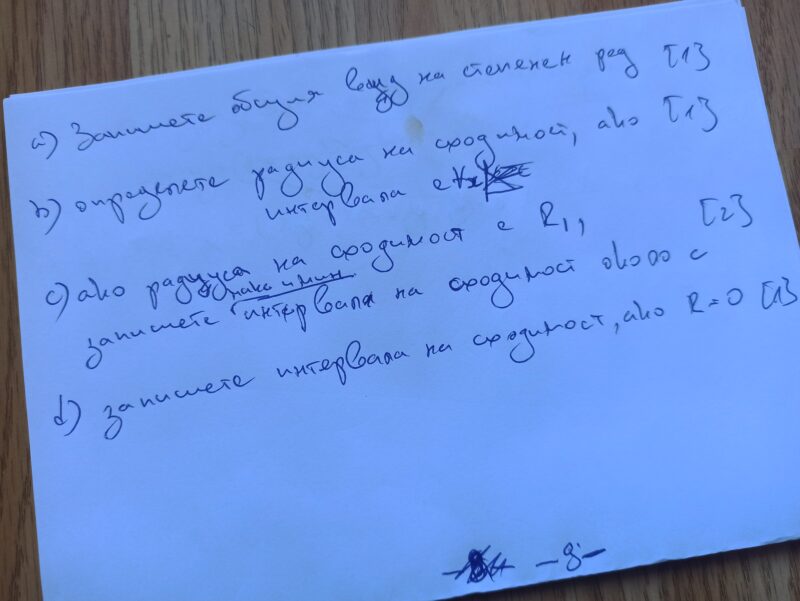 a) Запишете общия вид на степенен ред [1]
b) определете радиуса на сходимост, ако [1]
интервала е ∀x
c) ако радиуса на сходимост е R₁, [2]
макс и мин
запишете интервала на сходимост около c
d) запишете интервала на сходимост, ако R=0 [1]
-8-